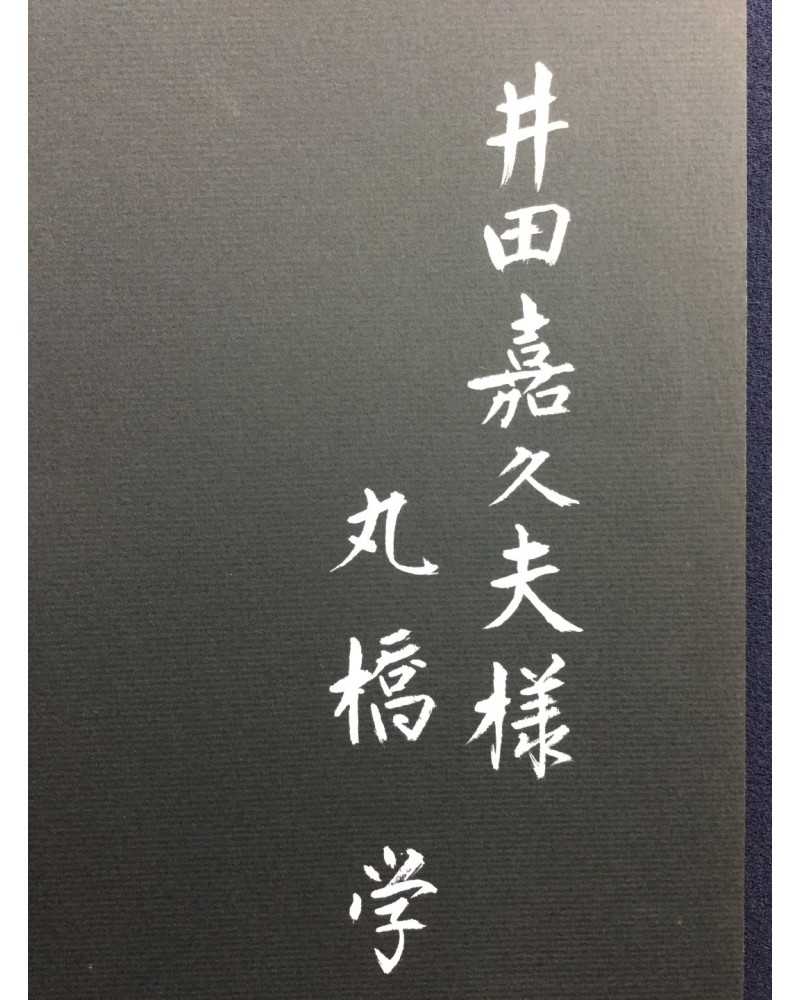 井田嘉久夫様
丸橋 学